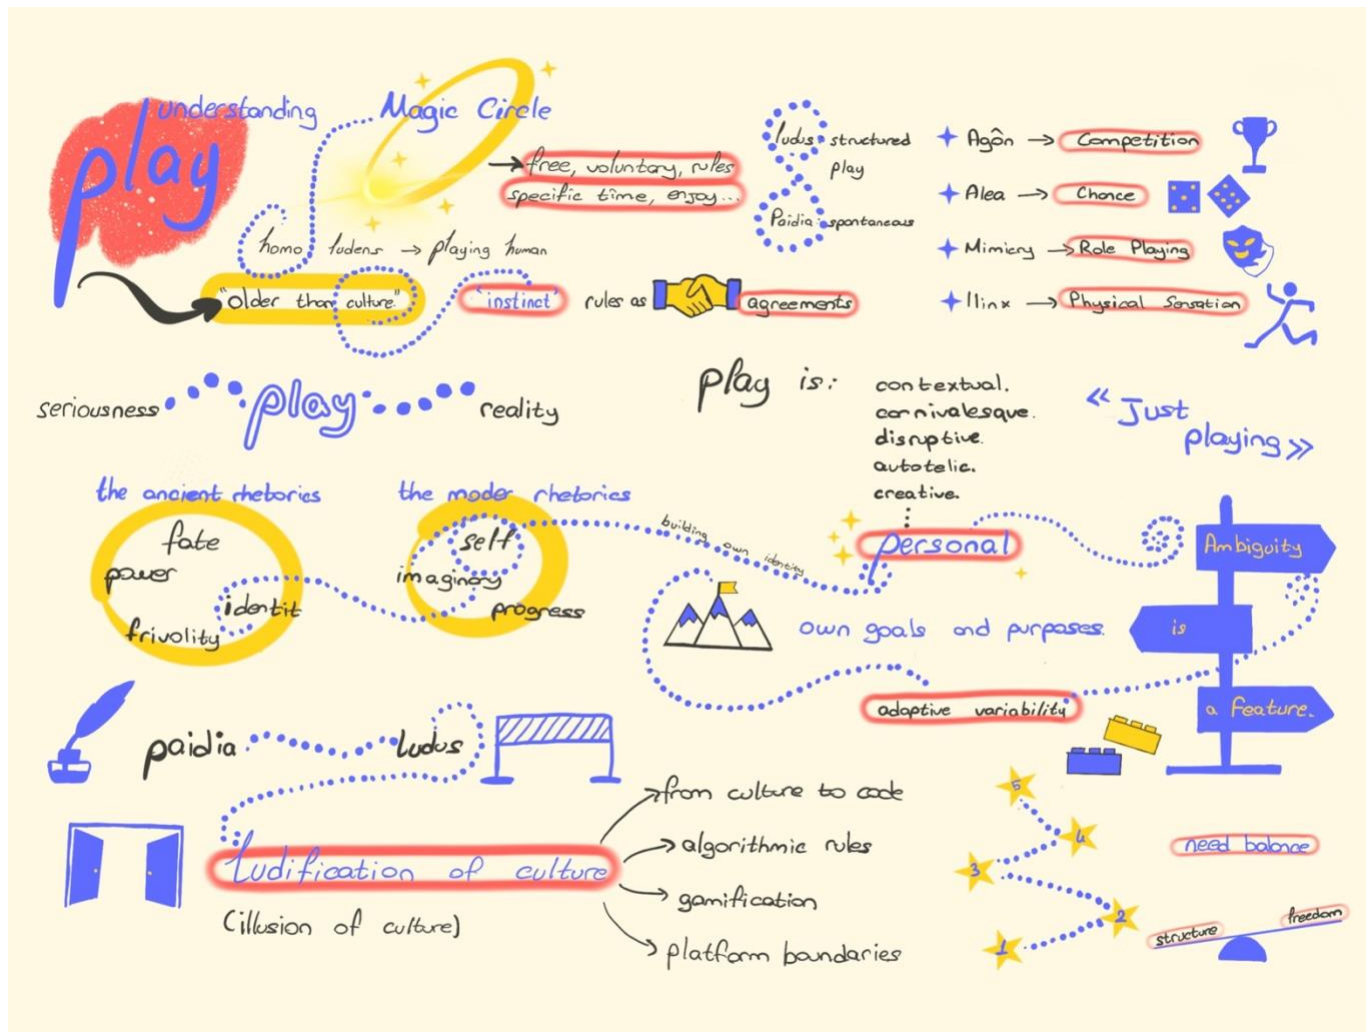 understanding
play
Magic Circle
→ free, voluntary, rules
specific time, enjoy...
homo ludens → playing human
"older than culture"
"instinct"
rules as
agreements
ludus: structured
play
Paidia: spontaneous
Agôn → Competition
Alea → Chance
Mimicry → Role Playing
Ilinx → Physical Sensation
seriousness
play
reality
play is:
contextual.
carnivalesque.
disruptive.
autotelic.
creative.
personal
« Just
playing »
the ancient rhetorics
fate
power
identit
frivolity
the moder rhetorics
self
imaginary
progress
building own identity
own goals and purposes.
adaptive variability
Ambiguity
is
a feature.
paidia
ludus
ludification of culture
(illusion of culture)
from culture to code
algorithmic rules
gamification
platform boundaries
5
4
3
2
1
need balance
structure
freedom